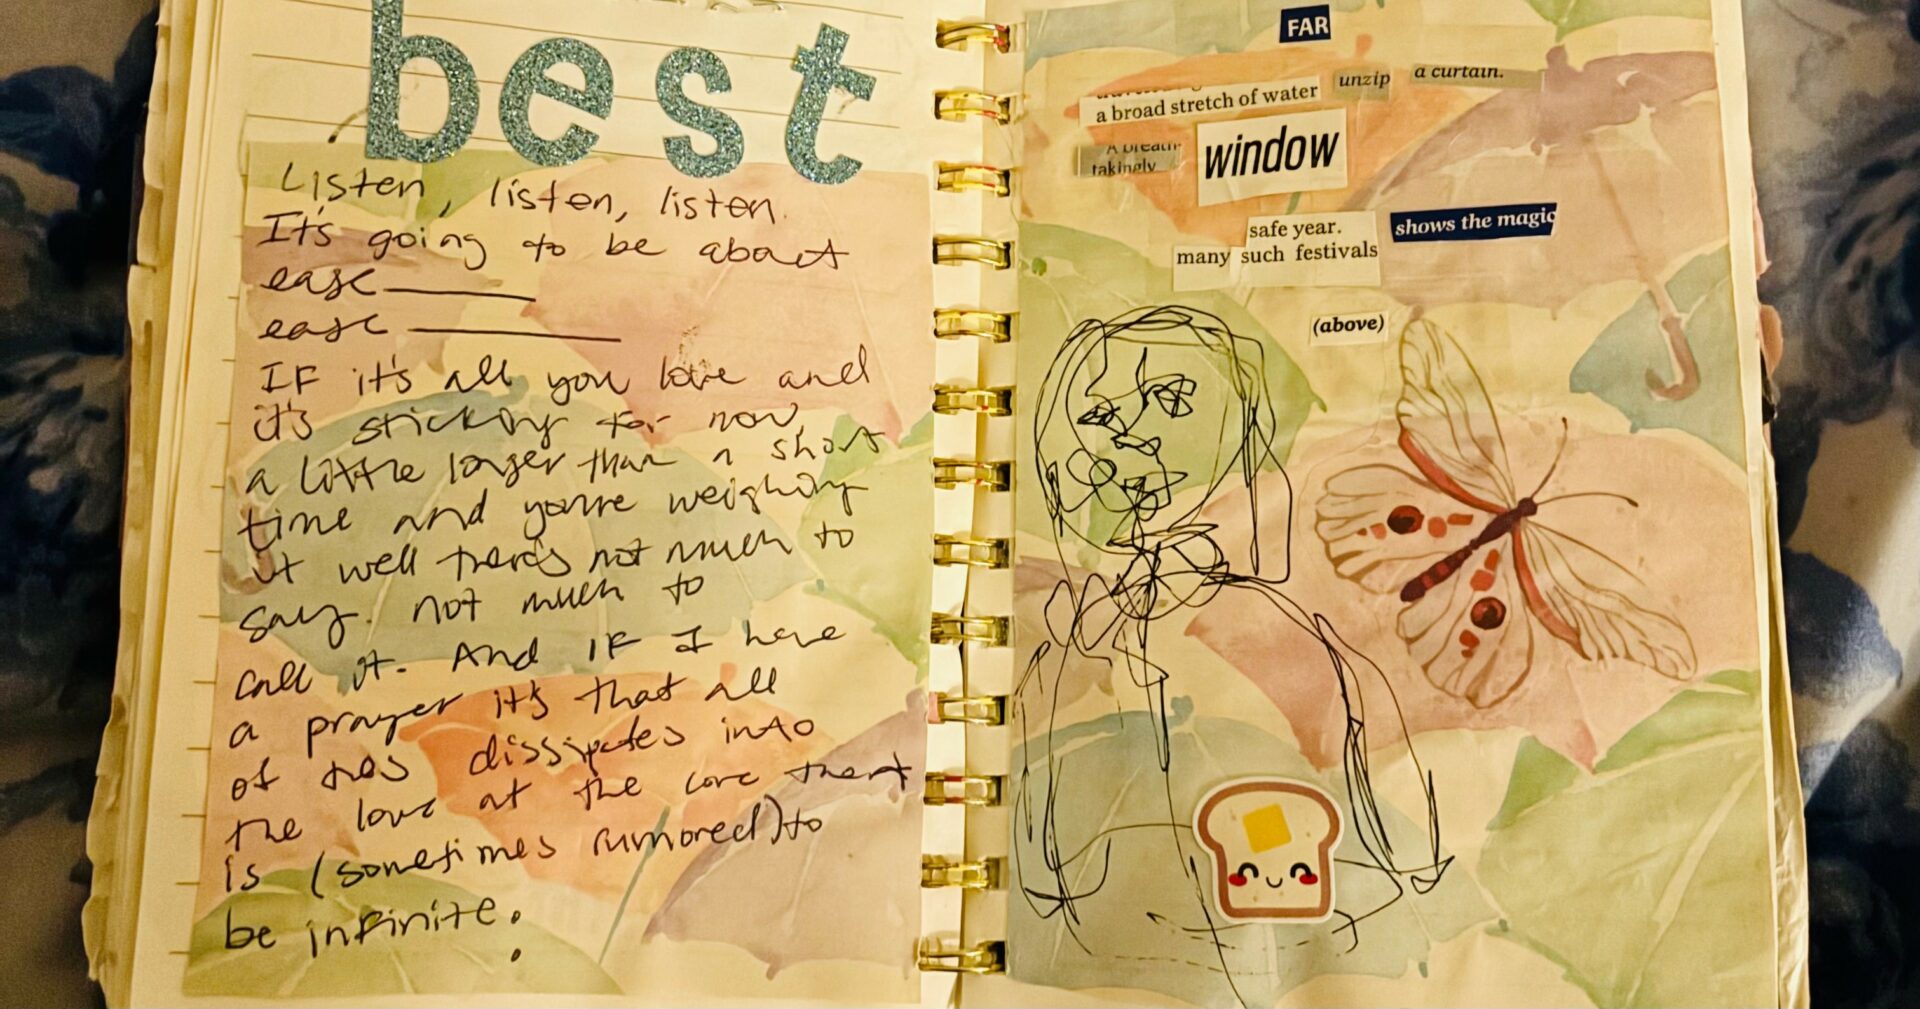 best
Listen, listen, listen.
It's going to be about
ease
ease
IF it's all you love and
it's sticking for now,
a little longer than a short
time and you're weighing
it well there's not much to
say. not much to
call it. And IF I have
a prayer it's that all
of this dissipates into
the love at the core that
is (sometimes rumored) to
be infinite.
FAR
a broad stretch of water unzip a curtain.
A breath-
takingly
window
safe year.
many such festivals
shows the magic
(above)